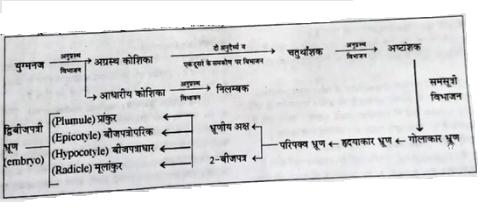 युग्मनज अनुप्रस्थ विभाजन अग्रस्थ कोशिका दो अनुदैर्घ्य व एक दूसरे के समकोण पर विभाजन चतुर्थांशक अनुप्रस्थ विभाजन अष्टांशक
आधारीय कोशिका अनुप्रस्थ विभाजन निलम्बक
समसूत्री विभाजन
गोलाकार भ्रूण हृदयाकार भ्रूण परिपक्व भ्रूण
भ्रूणीय अक्ष
2-बीजपत्र
(Plumule) प्रांकुर
(Epicotyle) बीजपत्रोपरिक
(Hypocotyle) बीजपत्राधार
(Radicle) मूलांकुर
द्विबीजपत्री
भ्रूण
(embryo)